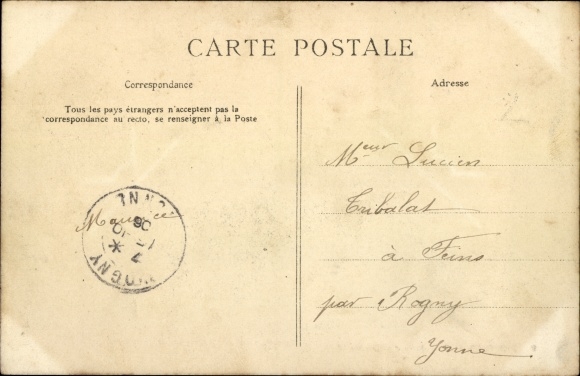 CARTE POSTALE
Correspondance
Tous les pays étrangers n'acceptent pas la
correspondance au recto, se renseigner à la Poste
Maurice
Adresse
Meur Lucien
Tribalat
à Feins
par Rogny
Yonne